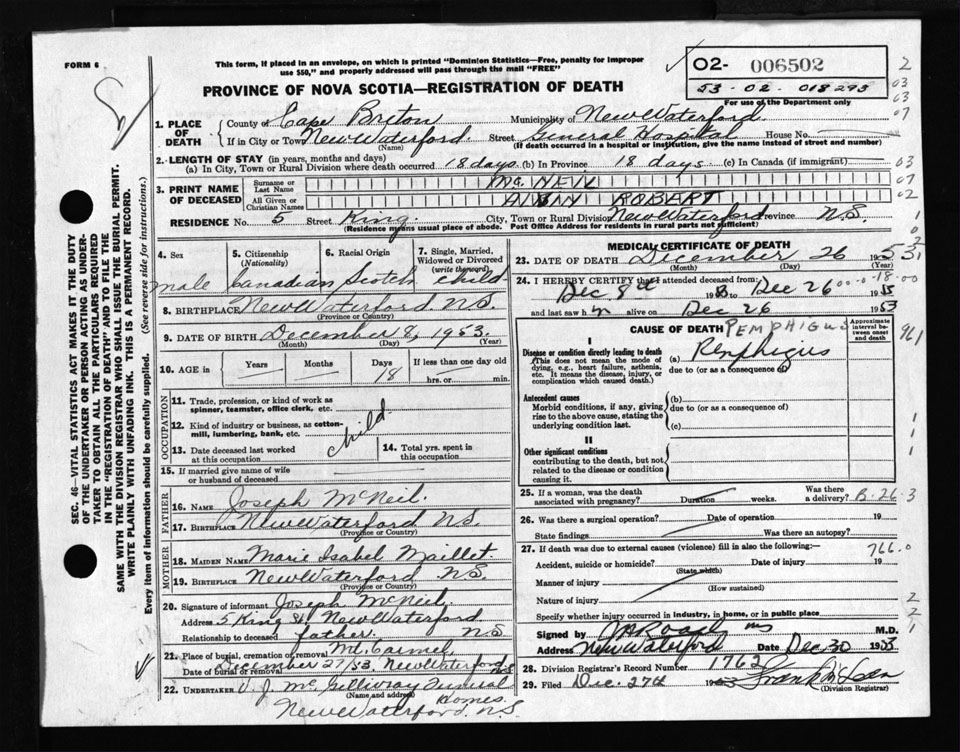 FORM 6
This form, if placed in an envelope, on which is printed "Dominion Statistics—Free, penalty for improper
use $50," and properly addressed will pass through the mail "FREE"
PROVINCE OF NOVA SCOTIA—REGISTRATION OF DEATH
02- 006502
53-02-018293
For use of the Department only
2
03
63
07
03
07
02
1. PLACE OF DEATH
County of Cape Breton Municipality of New Waterford
If in City or Town New Waterford. Street General Hospital House No.
(Name) (If death occurred in a hospital or institution, give the name instead of street and number)
2. LENGTH OF STAY (in years, months and days)
(a) In City, Town or Rural Division where death occurred 18 days (b) In Province 18 days (c) In Canada (if immigrant)
3. PRINT NAME OF DECEASED
Surname or Last Name Mc NEIL
All Given or Christian Names ROBERT
RESIDENCE No. 5 Street King. City, Town or Rural Division New Waterford Province N.S.
(Residence means usual place of abode. Post Office Address for residents in rural parts not sufficient)
4. Sex 5. Citizenship (Nationality) 6. Racial Origin 7. Single, Married, Widowed or Divorced (write the word)
male Canadian Scotch child
8. BIRTHPLACE New Waterford N.S.
(Province or Country)
9. DATE OF BIRTH December 8, 1953.
(Month) (Day) (Year)
10. AGE in Years Months Days If less than one day old
18 hrs. or min.
OCCUPATION
11. Trade, profession, or kind of work as
spinner, teamster, office clerk, etc.
12. Kind of industry or business, as cotton-
mill, lumbering, bank, etc. child
13. Date deceased last worked
at this occupation
14. Total yrs. spent in
this occupation
15. If married give name of wife
or husband of deceased
FATHER
16. NAME Joseph McNeil.
17. BIRTHPLACE New Waterford N.S
(Province or Country)
MOTHER
18. MAIDEN NAME Marie Isabel Maillet.
19. BIRTHPLACE New Waterford N.S.
(Province or Country)
20. Signature of informant Joseph McNeil.
Address 5 King St. New Waterford
Relationship to deceased father. N.S
21. Place of burial, cremation or removal Mt. Carmel
Date of burial or removal December 27/53. New Waterford N.S
22. UNDERTAKER V. J. McGillivray Funeral
(Name and address) Homes.
New Waterford. N.S.
MEDICAL CERTIFICATE OF DEATH
23. DATE OF DEATH December 26 1953
(Month) (Day) (Year)
24. I HEREBY CERTIFY that I attended deceased from:
Dec 8th 19 Dec 26 19
and last saw h alive on Dec 26 1953
CAUSE OF DEATH PEMPHIGUS
Approximate interval between onset and death
I
Disease or condition directly leading to death
(This does not mean the mode of
dying, e.g., heart failure, asthenia,
etc. It means the disease, injury, or
complication which caused death.)
(a)
due to (or as a consequence of)
961
Antecedent causes
Morbid conditions, if any, giving
rise to the above cause, stating the
underlying condition last.
(b)
due to (or as a consequence of)
(c)
II
Other significant conditions
contributing to the death, but not
related to the disease or condition
causing it.
25. If a woman, was the death
associated with pregnancy? Duration weeks. Was there
a delivery? B-26-3
26. Was there a surgical operation? Date of operation 19
State findings Was there an autopsy?
27. If death was due to external causes (violence) fill in also the following:— 766.0
Accident, suicide or homicide? Date of injury 19
(State which)
Manner of injury
(How sustained)
Nature of injury
Specify whether injury occurred in industry, in home, or in public place
Signed by M.D.
Address New Waterford Date Dec 30 19
28. Division Registrar's Record Number 1762
29. Filed Dec. 27th 19
(Division Registrar)
SEC. 46—VITAL STATISTICS ACT MAKES IT THE DUTY
OF THE UNDERTAKER OR PERSON ACTING AS UNDER-
TAKER TO OBTAIN ALL THE PARTICULARS REQUIRED
IN THE "REGISTRATION OF DEATH" AND TO FILE THE
SAME WITH THE DIVISION REGISTRAR WHO SHALL ISSUE THE BURIAL PERMIT.
WRITE PLAINLY WITH UNFADING INK. THIS IS A PERMANENT RECORD.
Every item of information should be carefully supplied. (See reverse side for instructions.)